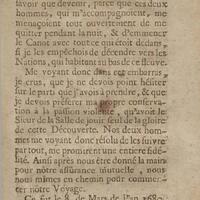 savoir que devenir, parce que ces deux
hommes, qui m'accompagnoient, me
menaçoient tout ouvertement de me
quitter pendant la nuit, & d'emmener
le Canot avec tout ce qui étoit dedans,
si je les empéchois de décendre vers les
Nations, qui habitent au bas de ce fleuve.
Me voyant donc dans cet embarras,
je crus, que je ne devois point hésiter
sur le parti que j'avois à prendre, & que
je devois préférer ma propre conservation
à la passion violente, qu'avoit le
Sieur de la Salle de jouir seul de la gloire
de cette Découverte. Nos deux hommes
me voyant donc résolu de les suivre
par tout, me promirent une entiére fidélité.
Ainsi aprés nous être donné la main
pour nôtre assurance mutuelle, nous
nous mîmes en chemin pour commencer
nôtre Voyage.
Ce fut le 8. de Mars de l'an 1680